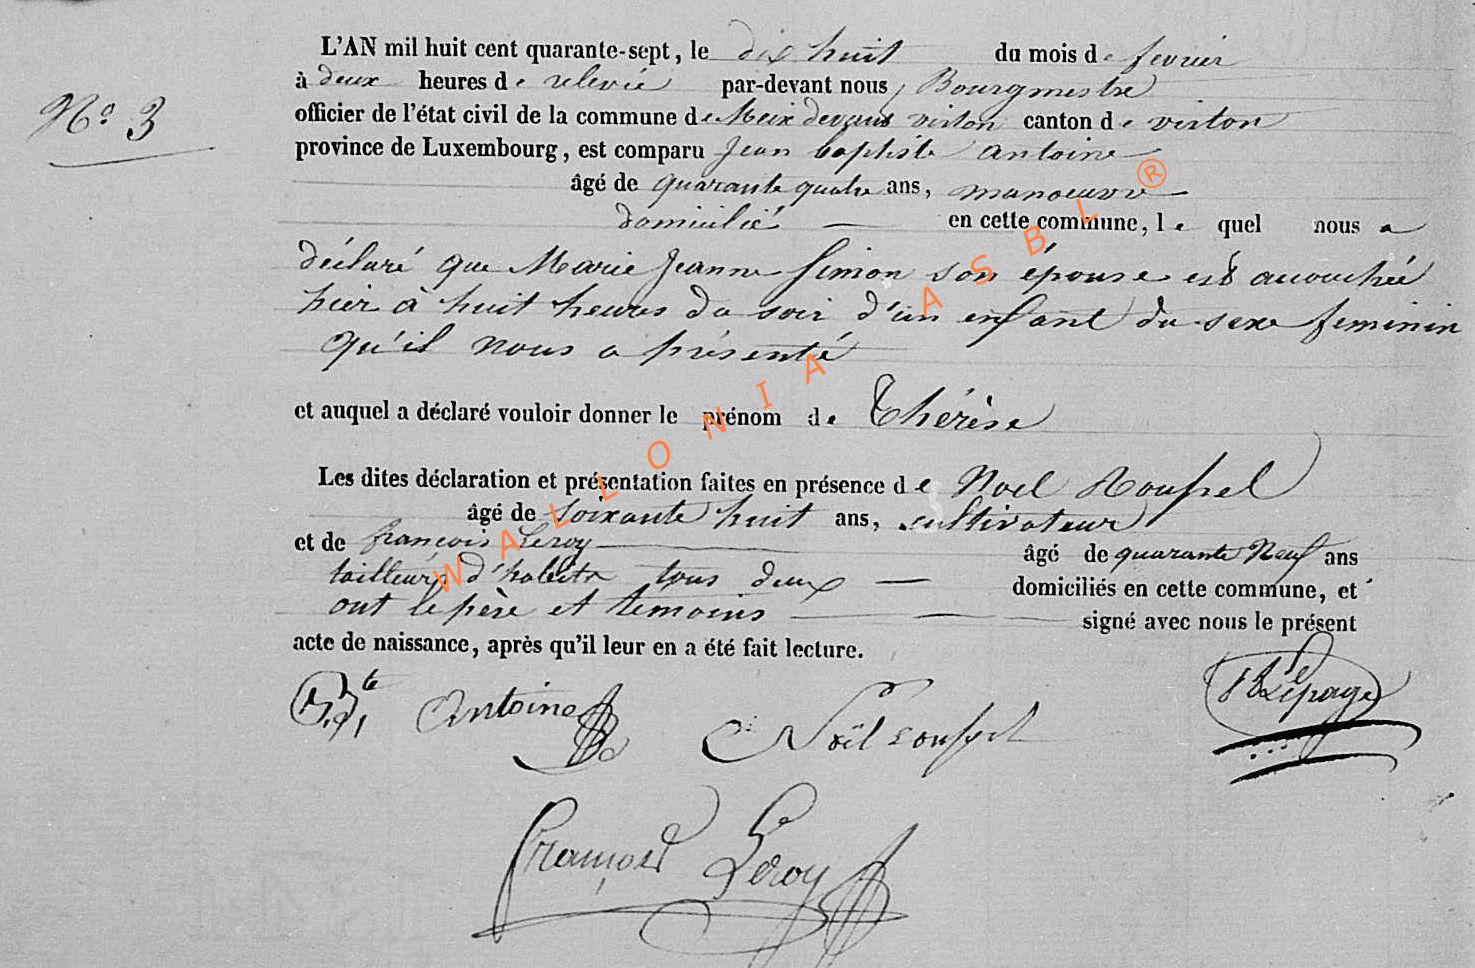 N° 3
L'AN mil huit cent quarante-sept, le dix huit du mois de fevrier
à deux heures de relevée par-devant nous Bourgmestre
officier de l'état civil de la commune de Meix devant virton canton de virton
province de Luxembourg, est comparu Jean baptiste antoine
âgé de quarante quatre ans, manoeuvre
domicilié en cette commune, le quel nous a
déclaré que Marie Jeanne Simon son épouse est accouchée
hier à huit heures du soir d'un enfant du sexe feminin
qu'il nous a présenté
et auquel a déclaré vouloir donner le prénom de Thérèse
Les dites déclaration et présentation faites en présence de Noel Roussel
âgé de Soixante huit ans, cultivateur
et de françois Leroy âgé de quarante Neuf ans
tailleur d'habits tous deux domiciliés en cette commune, et
ont le père et temoins signé avec nous le présent
acte de naissance, après qu'il leur en a été fait lecture.
Antoine Noël Lepage
François Leroy
WALLONIA ASBL ®